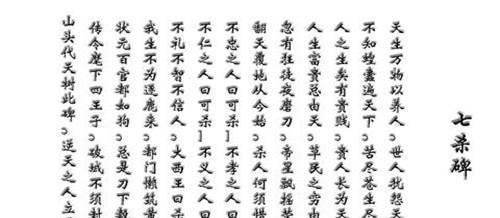 七杀碑
天生万物以养人，世人犹怨天
不知蝗蠹遍天下，苦尽苍生尽
人之生矣有贵贱，贵人长为天
人生富贵总由天，草民之穷由
忽有狂徒夜磨刀，帝星飘摇荧
翻天覆地从今始，杀人何须惜
不忠之人曰可杀！不孝之人曰
不仁之人曰可杀！不义之人曰
不礼不智不信人，大西王曰杀
我生不为逐鹿来，都门懒筑黄
状元百官都如狗，总是刀下觳
传令麾下四王子，破城不须封
山头代天树此碑，逆天之人立